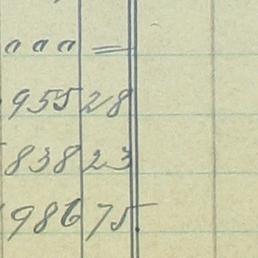 " " " =
955 28
838 23
986 75.